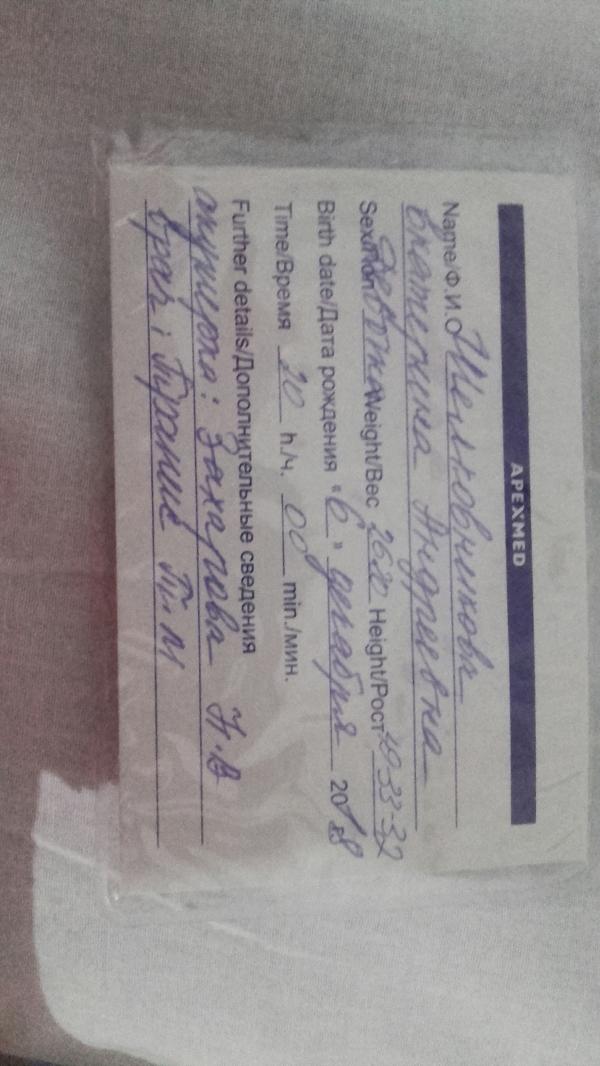 APEXMED
Name/Ф.И.О Шелковникова
Екатерина Андреевна
Sex/Пол Девочка Weight/Вес 2620 Height/Рост 49 33-32
Birth date/Дата рождения "6" декабря 2018
Time/Время 20 h./ч. 00 min./мин.
Further details/Дополнительные сведения
акушерка: Захарова Н.В
врач: